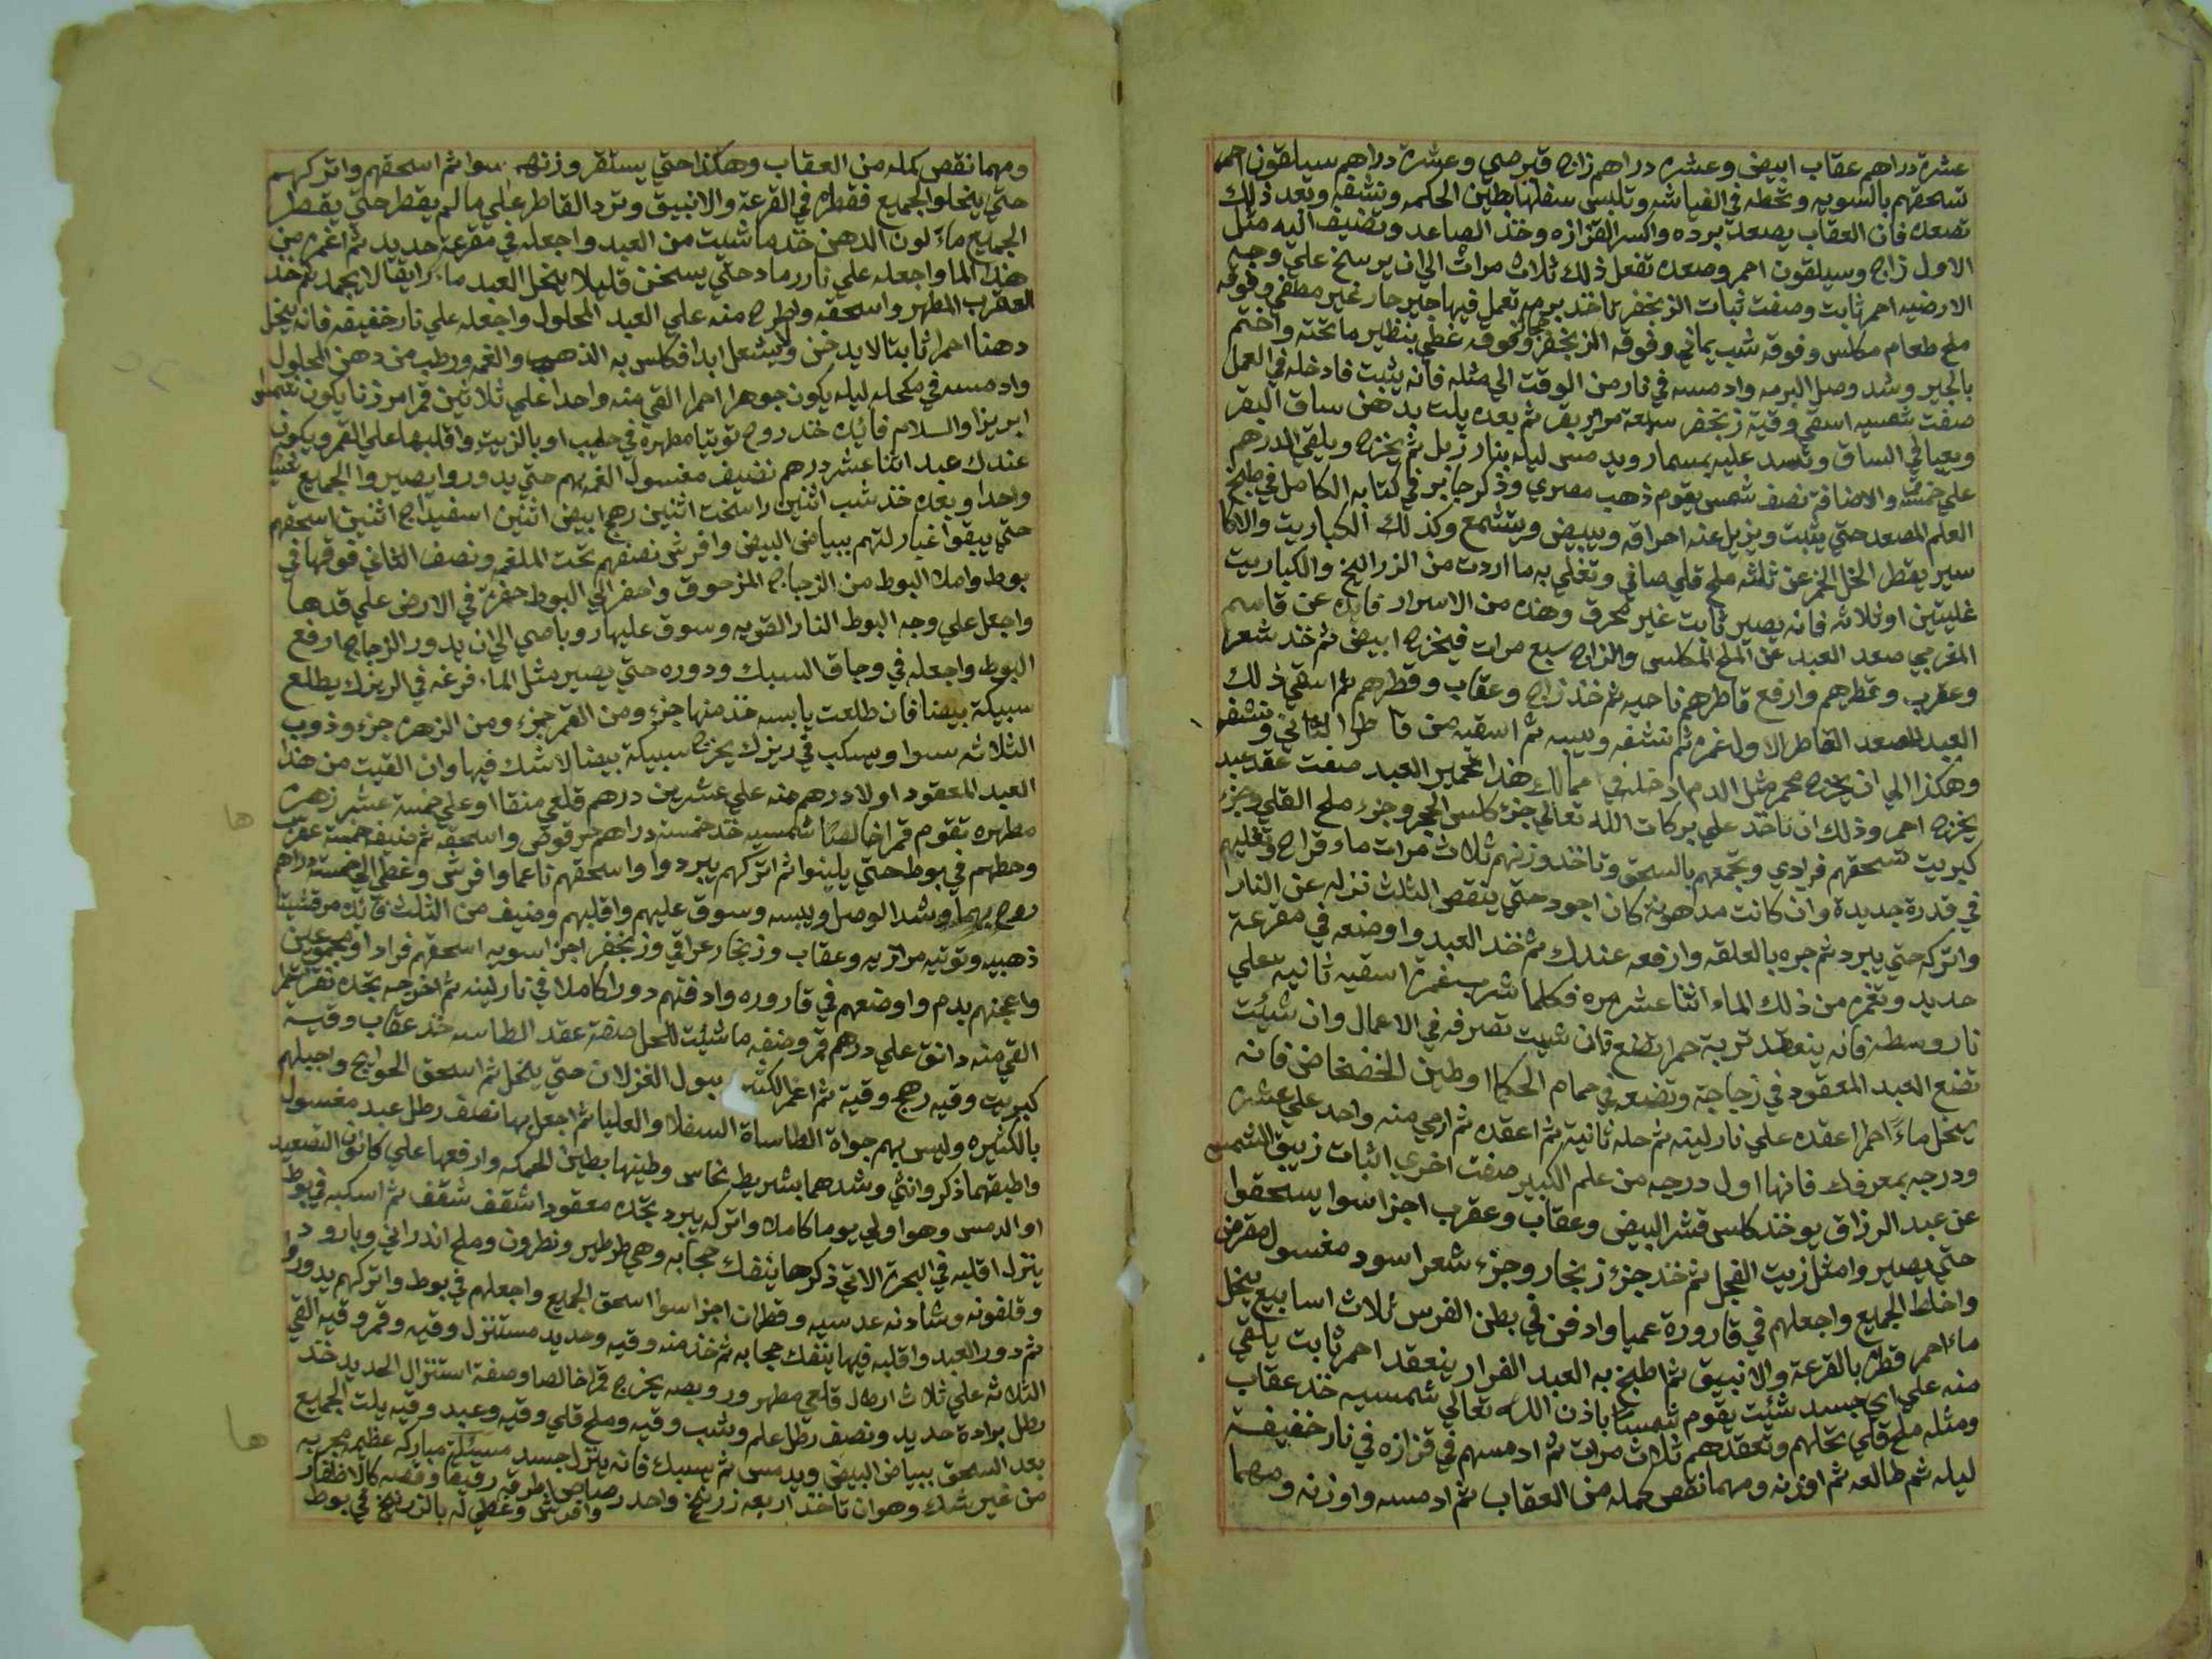 عشرة دراهم عقاب ابيض وعشره دراهم زاج قبرصي وعشرة دراهم سيلقون احمر
تسحقهم بالسويه وتحطه في الفياشه وتلبس سفلها بطين الحكمه وتشفه وبعد ذلك
تصعده فان العقاب يصعد برده واكسر القزازه وخذ الصاعد وتضيف اليه مثل
الاول زاج وسيلقون احمر وصعده تفعل ذلك ثلاث مرات الي ان يرسخ علي وجه
الارضيه احمر ثابت وصفت ثبات الزنجفر تاخذ برمه تعمل فيها جير حار غير مطفي وفوقه
ملح طعام مكلس وفوقه شب يماني وفوقه الزنجفر وفوقه غطي بنظير ما تحته واختم
بالجير وشد وصل البرمه وادمسه في نار من الوقت الي مثله فانه يثبت فادخله في العمل
صفت شمسيه اسقي وقية زنجفر سبعة مراير بقر ثم بعده يلت بدهن ساق البقر
ويعبا في الساق وتسد عليه بمسمار ويدمس ليله بنار زبل ثم يخرج ويلقي الدرهم
علي خمسة والاضافة نصف شمس يقوم ذهب مصري وذكر جابر في كتابه الكامل في طبخ
العلم المصعد حتي يثبت ويزيل عنه احراقه ويبيض ويتشمع وكذلك الكباريت والاكا
سير يقطر الخل الخمر عن ثلثه ملح قلي صافي وتغلي به ما اردت من الزرانيخ والكباريت
غليتين او ثلاثه فانه يصير ثابت غير محرق وهذه من الاسرار فايده عن قاسم
المغربي صعد العبد عن الملح المكلس والزاج سبع مرات فيخرج ابيض ثم خذ شعر
وعقرب وقطرهم وارفع قاطرهم ناحيه ثم خذ زاج وعقاب وقطرهم ثم اسقي ذلك
العبد المصعد القاطر الاول غمره ثم تنشفه ويبسه ثم اسقيه من قاطر الثاني وتنشفه
وهكذا الي ان يخرج محمر مثل الدم ادخله في اعمالك هذا تحمير العبد صفت عقد عبد
يخرج احمر وذلك ان تاخذ علي بركات الله تعالي جزء كلس الحجر وجزء ملح القلي وجزء
كبريت تسحقهم فرادي وتجمعهم بالسحق وتاخذ وزنهم ثلاث مرات ماء وقراح وتغليهم
في قدرة جديدة وان كانت مدهونة كان اجود حتي ينقص الثلث نزله عن النار
واتركه حتي يبرد ثم جره بالعلقه وارفعه عندك ثم خذ العبد واوضعه في مقرعة
حديد وتغمره من ذلك الماء اثنا عشر مره فكلما شرب غمرة اسقيه ثانيه علي
نار وسطه فانه ينعقد تربة حمرا فان شيت تصرفه في الاعمال وان شئت
تضع العبد المعقود في زجاجة وتضعه في حمام الحكما او طين الخضخاض فانه
ينحل ماءً احمرا اعقده علي نار لينه ثم حله ثانية ثم اعقده ثم ارمي منه واحد علي عشره
ودرجه بمعرفك فانها اول درجه من علم الكبير صفت اخري اثبات زيبق للشمس
عن عبد الرزاق يوخذ كلس قشر البيض وعقاب وعقرب اجزا سوا يسحقوا
حتي يصيروا مثل زيت الفجل ثم خذ جزء زنجار وجزء شعر اسود مغسول مقرض
واخلط الجميع واجعلهم في قارورة عميا وادفن في بطن الفرس ثلاث اسابيع ينحل
ماء احمر قطره بالقرعة والانبيق ثم اطبخ به العبد الفرار ينعقد احمر ثابت يلقي
منه علي اي جسد شئت يقوم شمسا باذن الله تعالي شمسيه خذ عقاب
ومثله ملح قلي تحلهم وتعقدهم ثلاث مرات ثم ادمسهم في قزازه في نار خفيفة
ليله ثم طالعه ثم اوزنه ومهما نقص كمله من العقاب ثم ادمسه واوزنه ومهما
ومهما نقص كمله من العقاب وهكذا حتي يستقر وزنهم سوا ثم اسحقهم واتركهم
حتي ينحلوا الجميع فقطره في القرعة والانبيق وترد القاطر علي ما لم يقطر حتي يقطر
الجميع ماءً لون الدهن خذ ما شيت من العبد واجعله في مقرعة حديد ثم اغمره من
هذا الما واجعله علي نار رماد حتي يسخن قليلا ينحل العبد ماء رايقا لا يجمد ثم خذ
العقرب المطهر واسحقه واطرح منه علي العبد المحلول واجعله علي نار خفيفه فانه ينحل
دهنا احمرا ثابتا لا يدخن ولا يشعل ابدا فكلس به الذهب والغمه ورطب من دهن المحلول
وادمسه في مكحله ليله يكون جوهرا احمرا القي منه واحدا علي ثلاثين قمر امرزنا يكون شمس
ابريزا والسلام فائيده خذ روح توتيا مطهرة في حليب او بالزيت واقلبها علي القمر ويكون
عندك عبد اثنا عشر درهم نضيف مغسول الغمه بهم حتي يدوروا يصيروا الجميع شيا
واحدا وبعده خذ شب اثنين راسخت اثنين رهج ابيض اثنين اسفيداج اثنين اسحقهم
حتي يبقوا غبار لتهم ببياض البيض وافرش نصفهم تحت الملغم ونصف الثاني فوقها في
بوط واملا البوط من الزجاج المزحوق واحفر الي البوط حفرة في الارض علي قدها
واجعل علي وجه البوط النار القويه وسوق عليها روباصي الي ان يدور الزجاج ارفع
البوط واجعله في وجاق السبك ودوره حتي يصير مثل الماء فرغه في الريزك يطلع
سبيكة بيضا فان طلعت يابسه خذ منها جزء ومن القمر جزء ومن الزهره جزء وذوب
الثلاثه سوا ويسكب في ريزك يخرج سبيكة بيضا لا شك فيها وان القيت من هذا
العبد المعقود اولا درهم منه علي عشرين درهم قلعي منقا او علي خمسة عشر زهرة
مطهره تقوم قمرا خالصا شمسيه خذ خمسة دراهم مرقوض واسحقه ثم ضيف خمسة عقرب
وحطهم في بوط حتي يلينوا ثم اتركهم يبردوا واسحقهم ناعما وافرش وغطي الي خمسة دراهم
روح بهما وشد الوصل ويبسه وسوق عليهم واقلبهم وضيف من الثلث فائيده مرقشيتا
ذهبيه وتوتيه مرازيه وعقاب وزنجار عراقي وزنجفر اجزا سويه اسحقهم فرادا ومجموعين
واعجنهم بدم واوضعهم في قاروره وادفنهم دورا كاملا في نار لينه ثم اخرجه تجده نقرة
القي منه دانق علي درهم قمر وضفه ما شيئت للحل صفة عقد الطاسه خذ عقاب وقية
كبريت وقيه رهج وقية ثم اغمر الكثيره ببول الغزلان حتي ينحل ثم اسحق الحوايج واجبلهم
بالكثيره وليس بهم جواة الطاساة السفلا والعليا ثم اجعل بها نصف رطل عبد مغسول
واطبقهما ذكر وانثي وشدهما بشريط نحاس وطينها بطين الحكمه وارفعها علي كانون التصعيد
او الدمس وهو اولي يوما كاملا واتركه يبرد تجده معقودا شقف شقف ثم اسكبه في بوط
ينزل اقليه في البحرة الاتي ذكرها ينفك حجابه وهي طرطير ونطرون وملح اندراني وبارود
وقلفونه وشادنه عدسيه وقطران اجزا سوا اسحق الجميع واجعلهم في بوط واتركهم يدوروا
ثم دور العبد واقلبه فيها ينفك حجابه ثم خذ منه وقيه وحديد مستنزل وقيه وقمر وقيه القي
الثلاثه علي ثلاث ارطال قلعي مطهر وروبصه يخرج قمرا خالصا وصفة استنزال الحديد خذ
رطل برادة حديد ونصف رطل علم وشب وقيه وملح قلي وقيه وعبد وقيه يلت الجميع
بعد السحق ببياض البيض ويدمس ثم يسبك فانه ينزل جسد مسئلة مباركه عظيمه مجربه
من غير شك وهو ان تاخذ اربعه زرنيخ واحد رصاص اطرقه رقيقا وقصه كالاظفار
وافرش وغطي له بالزرنيخ في بوط
ها
ها